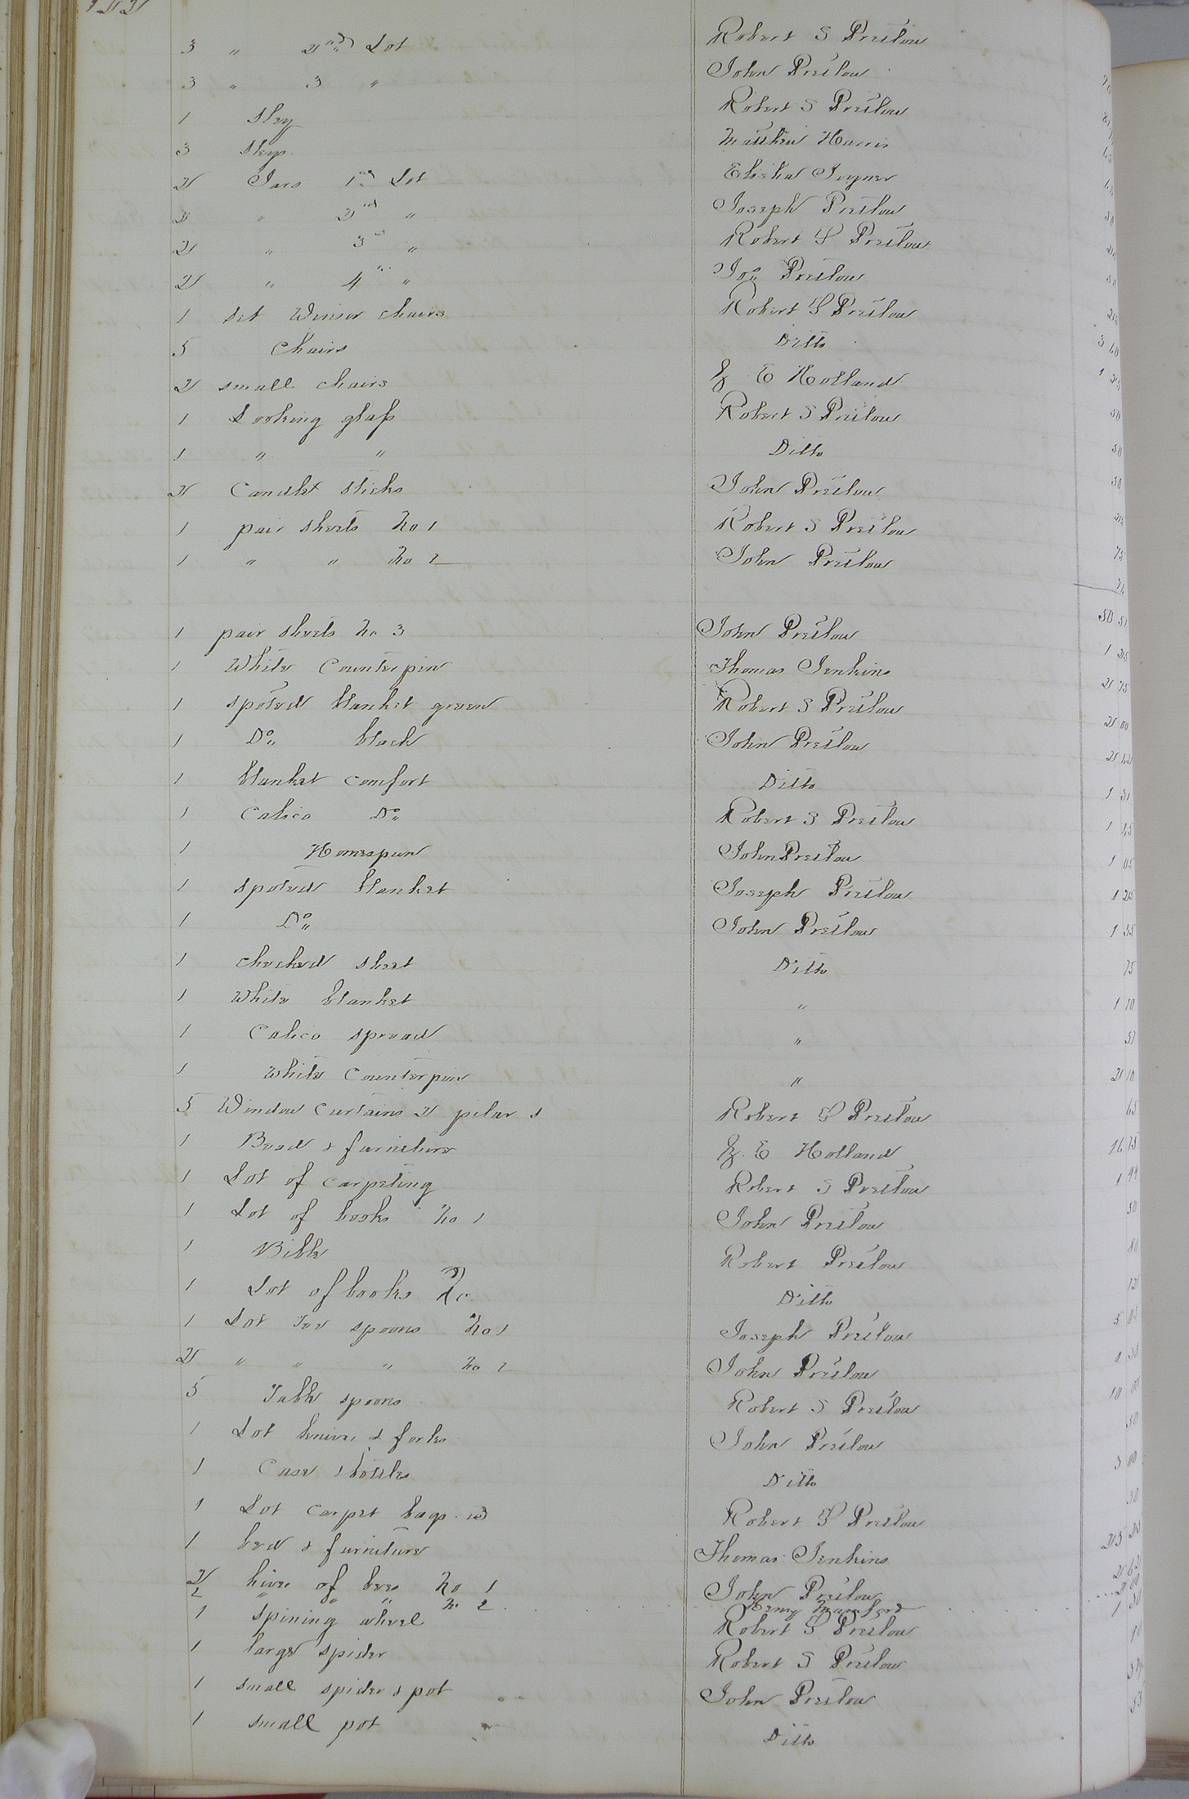 3 " 2nd Lot Robert S Preslow
3 " 3 " John Preslow
1 Sley Robert S Preslow
3 Sleys Matthew Harris
2 Jars 1st Lot Elisha Joyner
2 " 2nd " Joseph Preslow
2 " 3rd " Robert S Preslow
2 " 4th " Jos Preslow
1 Set Winsor chairs Robert S Preslow
5 Chairs Ditto 3
2 small chairs E Holland 1
1 Looking glass Robert S Preslow 50
1 " " Ditto 50
2 Candle sticks John Preslow
1 pair sheets No 1 Robert S Preslow
1 " " No 2 John Preslow 75
50 51
1 pair sheets No 3 John Preslow 1 25
1 White Counterpin Thomas Jenkins 2 75
1 spoted blanket green Robert S Preslow 2 00
1 Do black John Preslow 2
1 blanket comfort Ditto 1 31
1 Calico Do Robert S Preslow 1
1 Homespun John Preslow 1 05
1 spoted blanket Joseph Preslow 1 25
1 Do John Preslow 1 35
1 checked sheet Ditto 75
1 White blanket " 1 10
1 Calico spread " 51
1 White Counterpin " 2 10
5 Window Curtains 2 pilars Robert S Preslow 65
1 Bead & furniture E Holland 16 75
1 Lot of carpeting Robert S Preslow 1 99
1 Lot of books No 1 John Preslow 50
1 Bible Robert Preslow 80
1 Lot of books No Ditto
1 Lot Tea spoons No 1 Joseph Preslow 5
2 " " " No 2 John Preslow
5 Table spoons Robert S Preslow 10
1 Lot knives & forks John Preslow 50
1 Case & bottles Ditto 3
1 Lot carpet bags Robert S Preslow
1 bed & furniture Thomas Jenkins
2 hive of bees No 1 John Preslow
2 " " " No 2 Henry
1 spining wheel Robert S Preslow
1 large spider Robert S Preslow
1 small spider & pot John Preslow
1 small pot Ditto